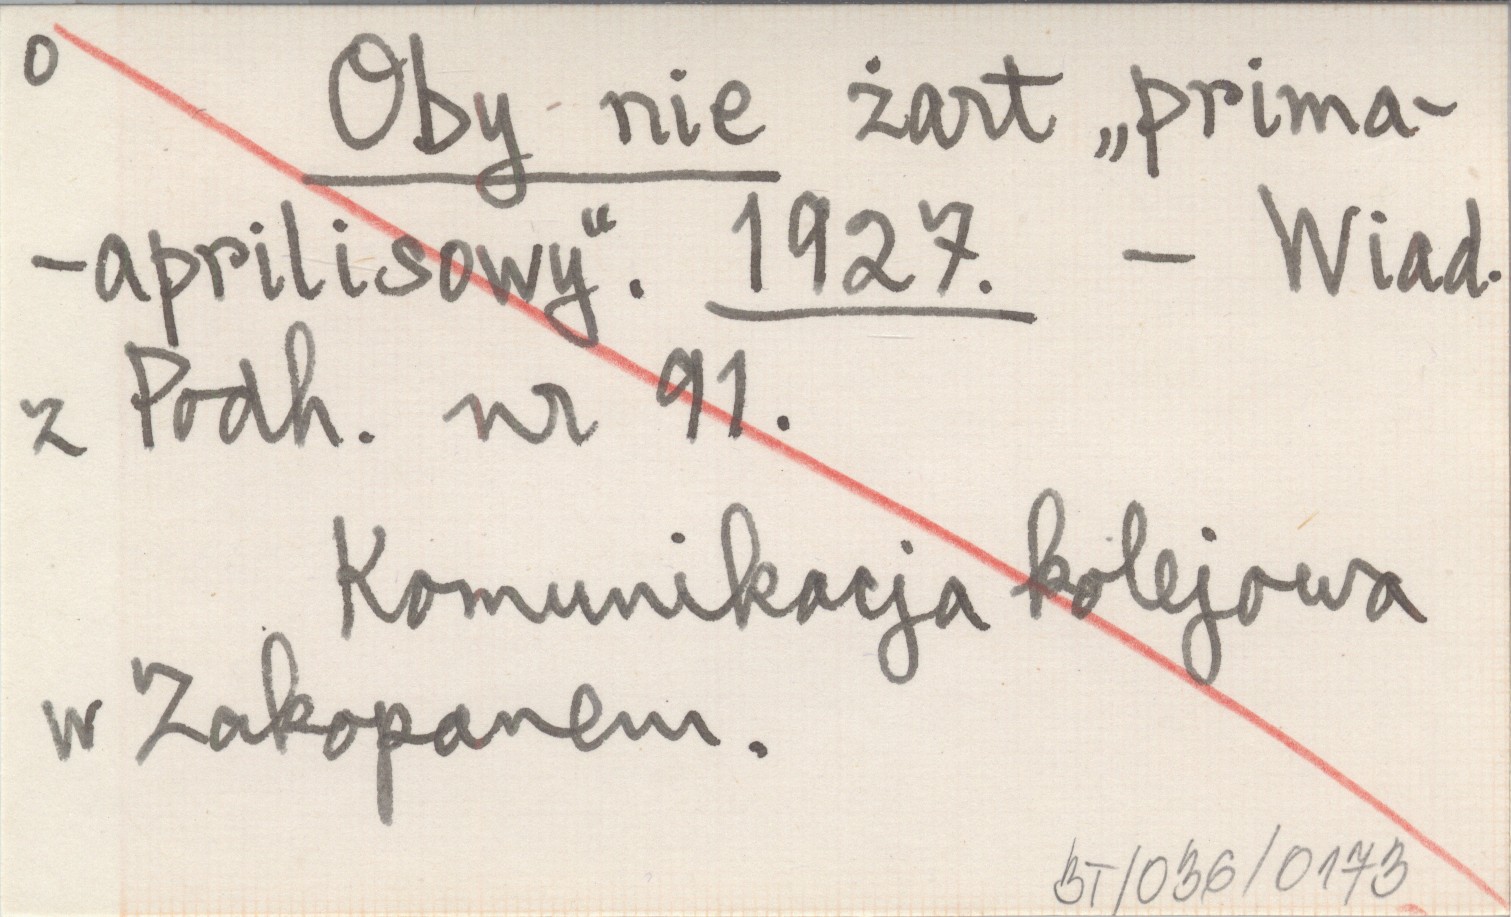 o
Oby nie żart „prima-
-aprilisowy“. 1927. – Wiad.
z Podh. nr 91.
Komunikacja kolejowa
w Zakopanem.
BT/036/0173